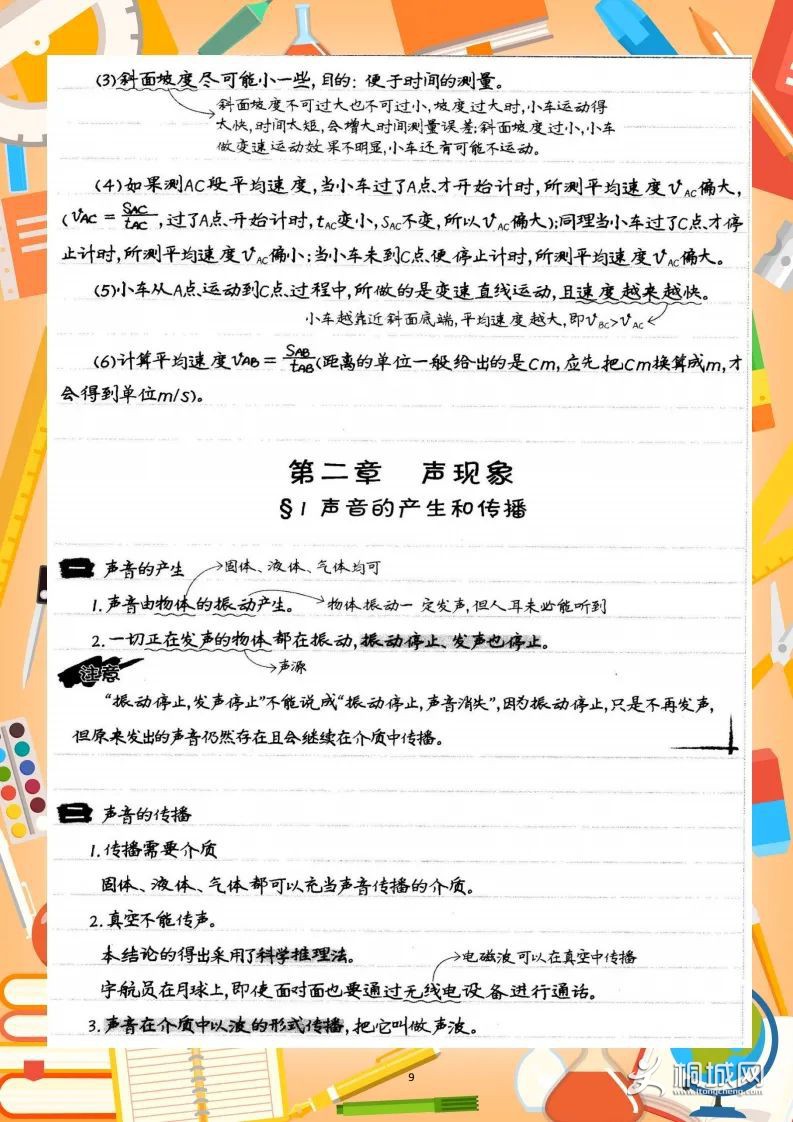 (3)斜面坡度尽可能小一些,目的:便于时间的测量。
斜面坡度不可过大也不可过小,坡度过大时,小车运动得
太快,时间太短,会增大时间测量误差;斜面坡度过小,小车
做变速运动效果不明显,小车还有可能不运动。
(4)如果测AC段平均速度,当小车过了A点才开始计时,所测平均速度vAC偏大,
(vAC=SAC/tAC,过了A点开始计时,tAC变小,SAC不变,所以vAC偏大);同理当小车过了C点才停
止计时,所测平均速度vAC偏小;当小车未到C点便停止计时,所测平均速度vAC偏大。
(5)小车从A点运动到C点过程中,所做的是变速直线运动,且速度越来越快。
小车越靠近斜面底端,平均速度越大,即vBC>vAC
(6)计算平均速度vAB=SAB/tAB(距离的单位一般给出的是Cm,应先把Cm换算成m,才
会得到单位m/s)。
第二章 声现象
§1 声音的产生和传播
一 声音的产生 固体、液体、气体均可
1.声音由物体的振动产生。 物体振动一定发声,但人耳未必能听到
2.一切正在发声的物体都在振动,振动停止、发声也停止。
注意 声源
“振动停止,发声停止”不能说成“振动停止,声音消失”,因为振动停止,只是不再发声,
但原来发出的声音仍然存在且会继续在介质中传播。
二 声音的传播
1.传播需要介质
固体、液体、气体都可以充当声音传播的介质。
2.真空不能传声。
本结论的得出采用了科学推理法。 电磁波可以在真空中传播
宇航员在月球上,即使面对面也要通过无线电设备进行通话。
3.声音在介质中以波的形式传播,把它叫做声波。
9
桐城网
www.itongcheng.com